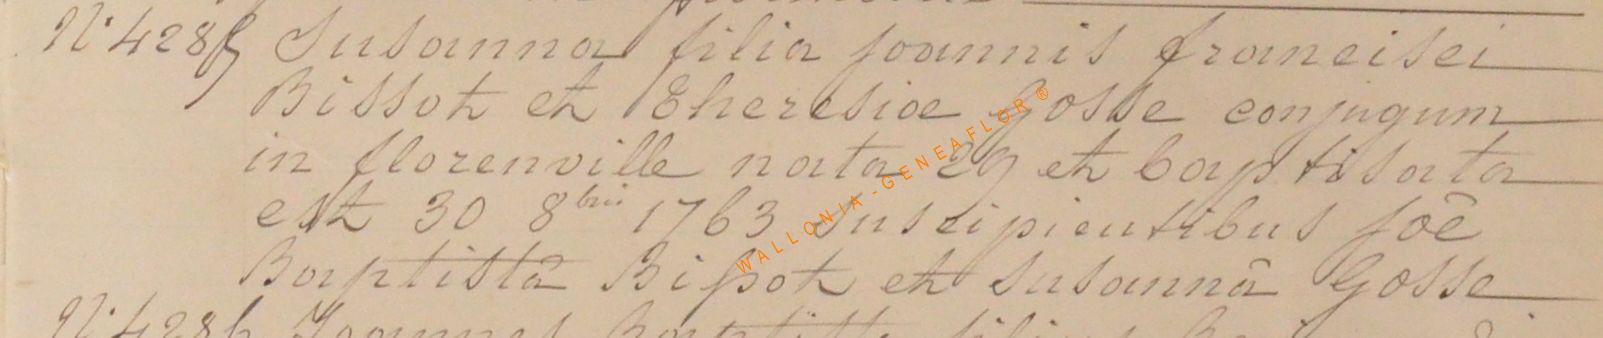 N° 4285 Susanna filia joannis francisci
Bissot et Theresiae Gosse conjugum
in florenville nata 29 et baptisata
est 30 8bris 1763 suscipientibus joê
Baptistâ Bissot et susannâ Gosse
N° 4286 Joannes Baptista filius
WALLONIA-GENEAFLOR®